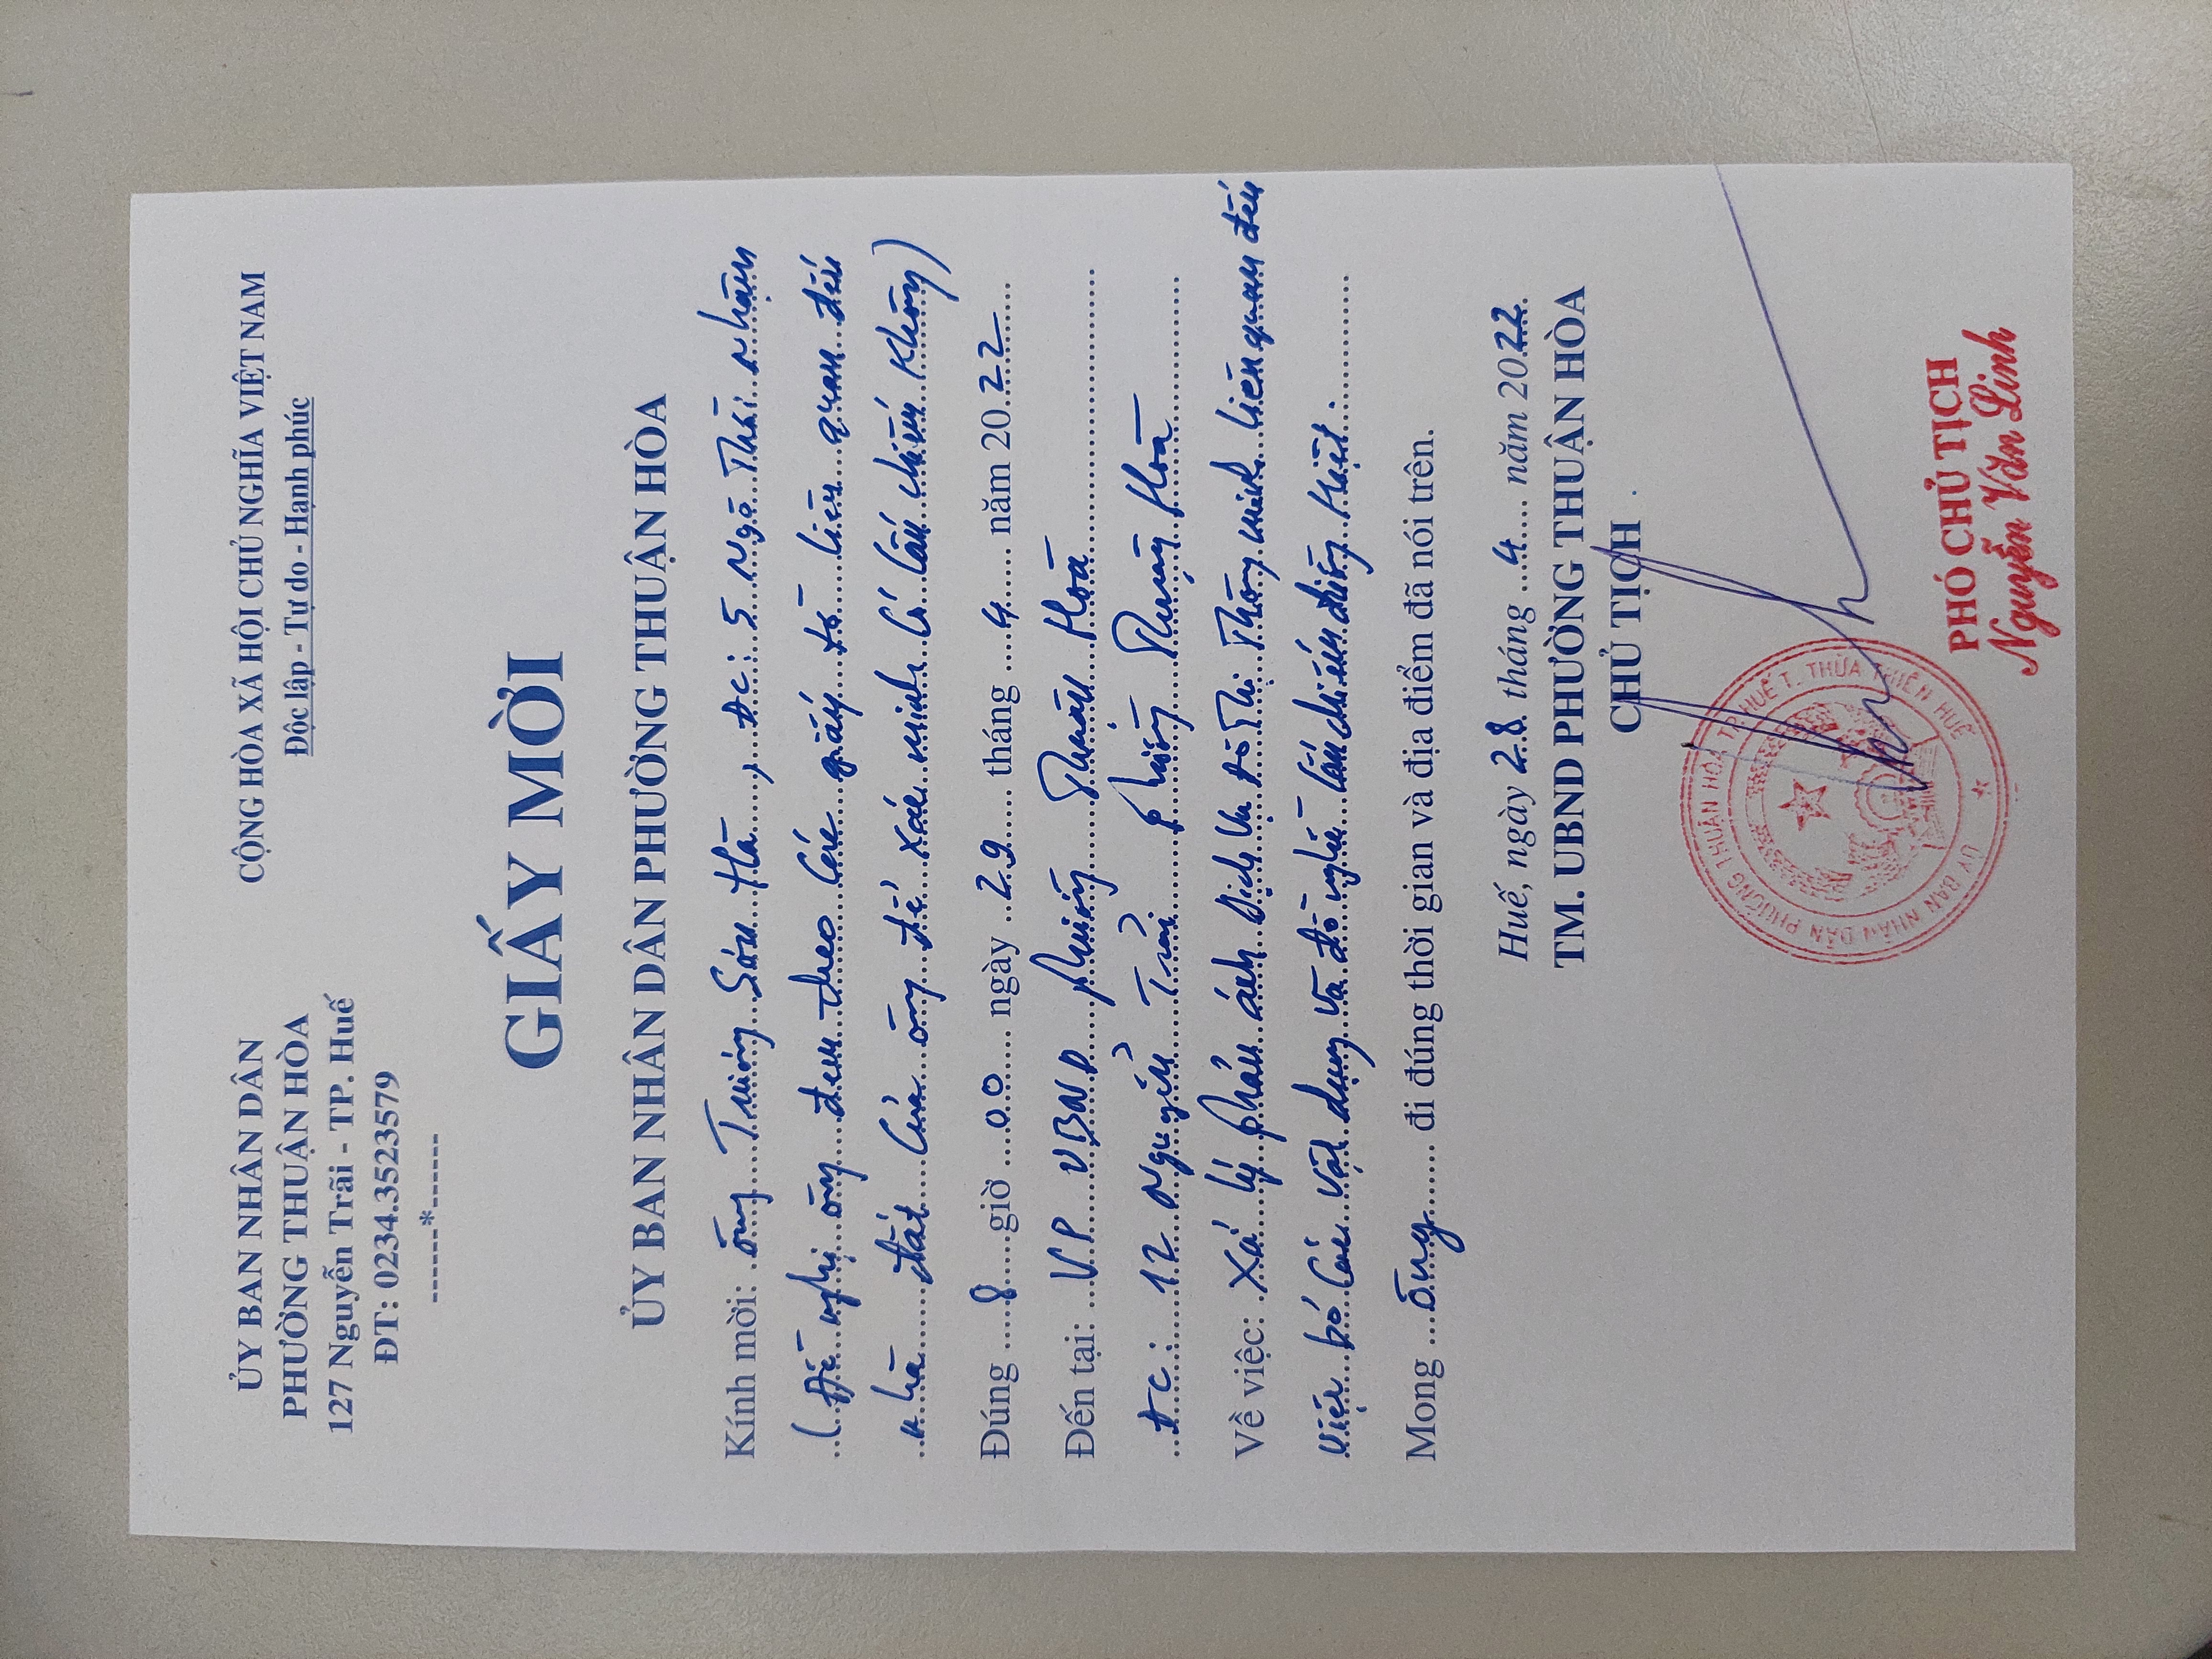 ỦY BAN NHÂN DÂN
PHƯỜNG THUẬN HÒA
127 Nguyễn Trãi - TP. Huế
ĐT: 0234.3523579
------*------
CỘNG HÒA XÃ HỘI CHỦ NGHĨA VIỆT NAM
Độc lập - Tự do - Hạnh phúc
GIẤY MỜI
ỦY BAN NHÂN DÂN PHƯỜNG THUẬN HÒA
Kính mời: ông Trương Sơn Hà, Đc: 5 Ngô Thời Nhậm
(Đề nghị ông đem theo các giấy tờ liên quan đến
nhà đất của ông để xác minh có lấn chiếm không)
Đúng 8 giờ 00 ngày 29 tháng 4 năm 2022
Đến tại: VP UBND phường Thuận Hoà
ĐC: 12 Nguyễn Trãi phường Thuận Hoà
Về việc: Xử lý phản ánh Dịch Vụ Đô Thị Thông minh liên quan đến
việc bỏ các vật dụng và đồ nghề lấn chiếm đường kiệt.
Mong ông đi đúng thời gian và địa điểm đã nói trên.
Huế, ngày 28 tháng 4 năm 2022
TM. UBND PHƯỜNG THUẬN HÒA
CHỦ TỊCH
ỦY BAN NHÂN DÂN PHƯỜNG THUẬN HÒA TP. HUẾ T. THỪA THIÊN HUẾ
PHÓ CHỦ TỊCH
Nguyễn Văn Linh